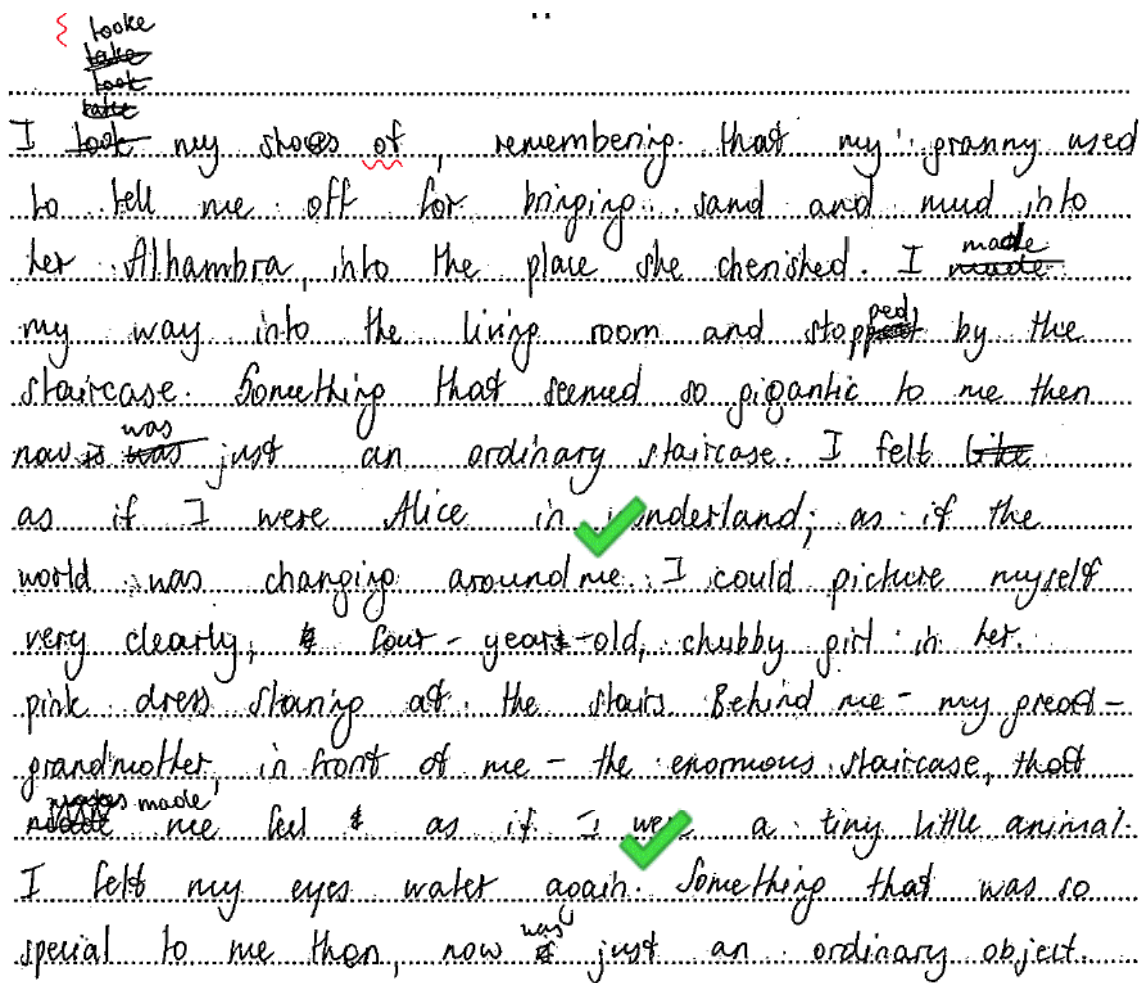 tooke
take
took
take
I took my shoes of, remembering that my granny used
to tell me off for bringing sand and mud into
her Alhambra, into the place she cherished. I made made
my way into the living room and stopped by the
staircase. Something that seemed so gigantic to me then
now is was was just an ordinary staircase. I felt like
as if I were Alice in wonderland; as if the
world was changing around me. I could picture myself
very clearly; four-year-old, chubby girl in her
pink dress staring at the stairs. Behind me - my great-
grandmother, in front of me - the enormous staircase, that
made me feel as if I were a tiny little animal.
I felt my eyes water again. Something that was so
special to me then, now was just an ordinary object.